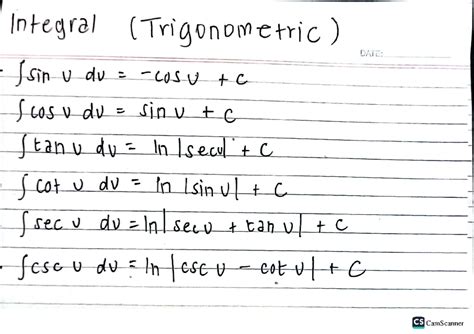 Integral (Trigonometric)
DATE:
∫ sin u du = -cos u + c
∫ cos u du = sin u + c
∫ tan u du = ln |sec u| + c
∫ cot u du = ln |sin u| + c
∫ sec u du = ln | sec u + tan u | + c
∫ csc u du = ln | csc u - cot u | + c
CS CamScanner